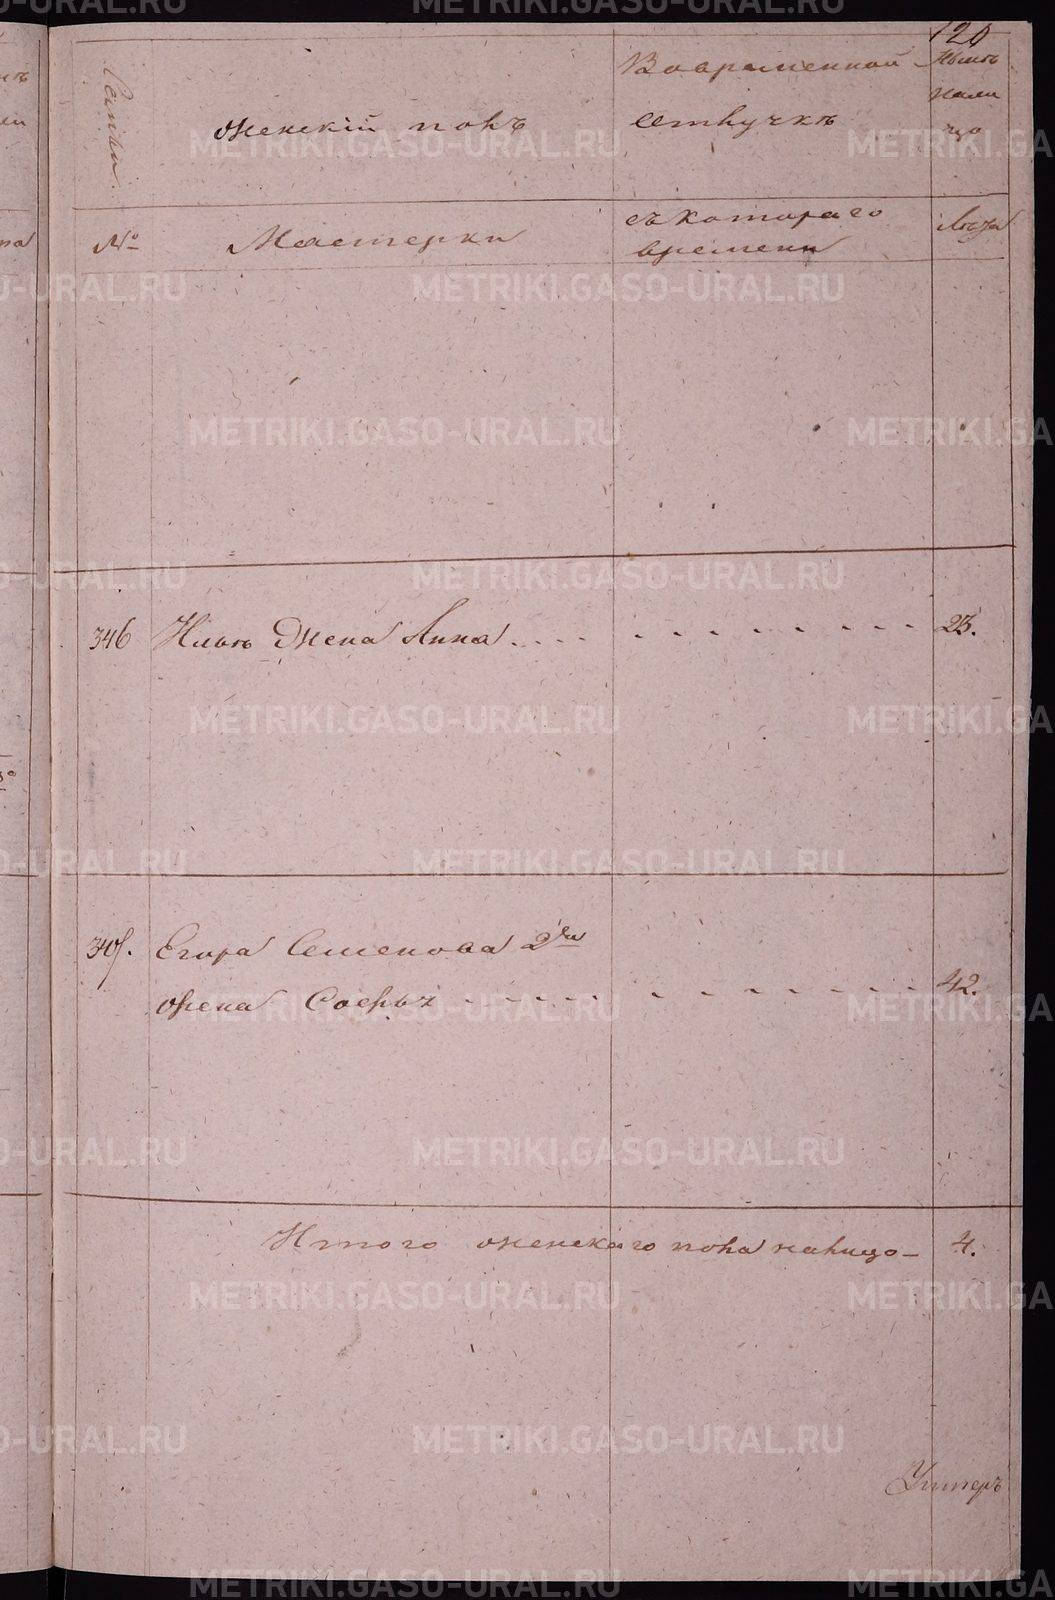 120
Семьи.
женскій полъ
Во временной
отлучкѣ
Нынѣ
нали
цо
№
Мастерки
съ котораго
времени
Лѣта
346 Ильѣ Жена Анна 23.
Егора Семенова 2й
жена Софья 42.
Итого женскаго пола налицо 4.
METRIKI.GASO-URAL.RU